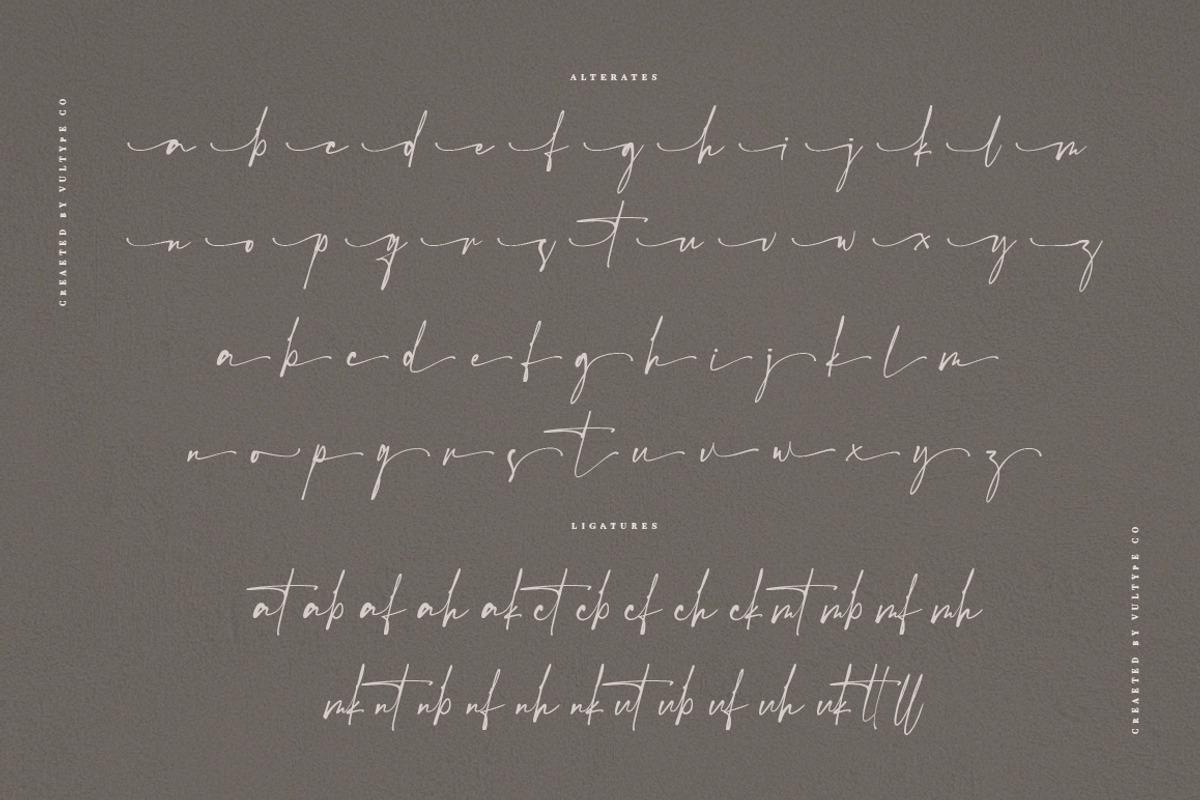 ALTERATES
CREAETED BY VULTYPE CO
a b c d e f g h i j k l m
n o p q r s t u v w x y z
a b c d e f g h i j k l m
n o p q r s t u v w x y z
LIGATURES
at ab af ah ak ct cb cf ch ck mt mb mf mh
mk nt nb nf nh nk ut ub uf uh uk tt ll
CREAETED BY VULTYPE CO